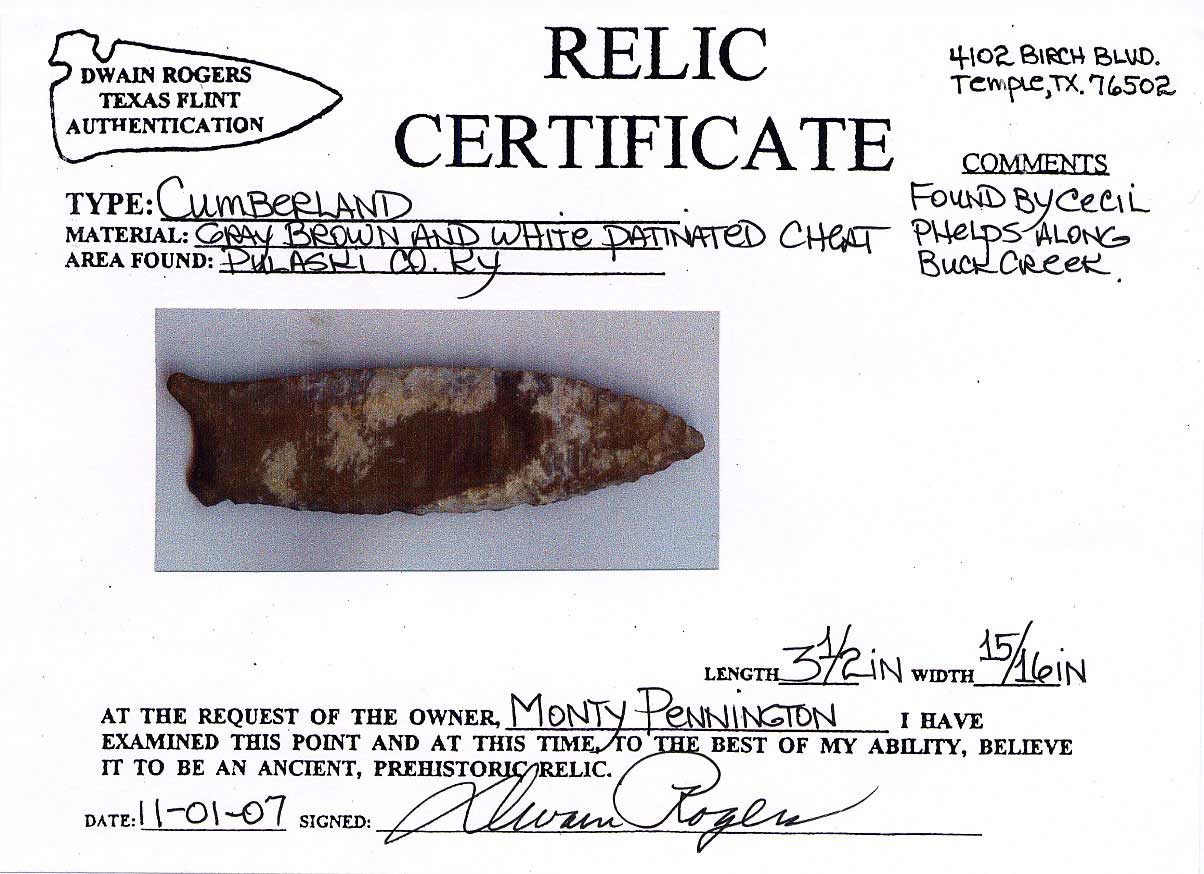 DWAIN ROGERS
TEXAS FLINT
AUTHENTICATION
RELIC
CERTIFICATE
4102 BIRCH BLVD.
Temple, TX. 76502
TYPE: CUMBERLAND
MATERIAL: GRAY BROWN AND WHITE PATINATED CHERT
AREA FOUND: PULASKI CO. KY
COMMENTS
FOUND BY CECIL
PHELPS ALONG
BUCK CREEK.
LENGTH 3 1/2 IN WIDTH 15/16 IN
AT THE REQUEST OF THE OWNER, MONTY PENNINGTON I HAVE
EXAMINED THIS POINT AND AT THIS TIME, TO THE BEST OF MY ABILITY, BELIEVE
IT TO BE AN ANCIENT, PREHISTORIC RELIC.
DATE: 11-01-07 SIGNED: Dwain Rogers